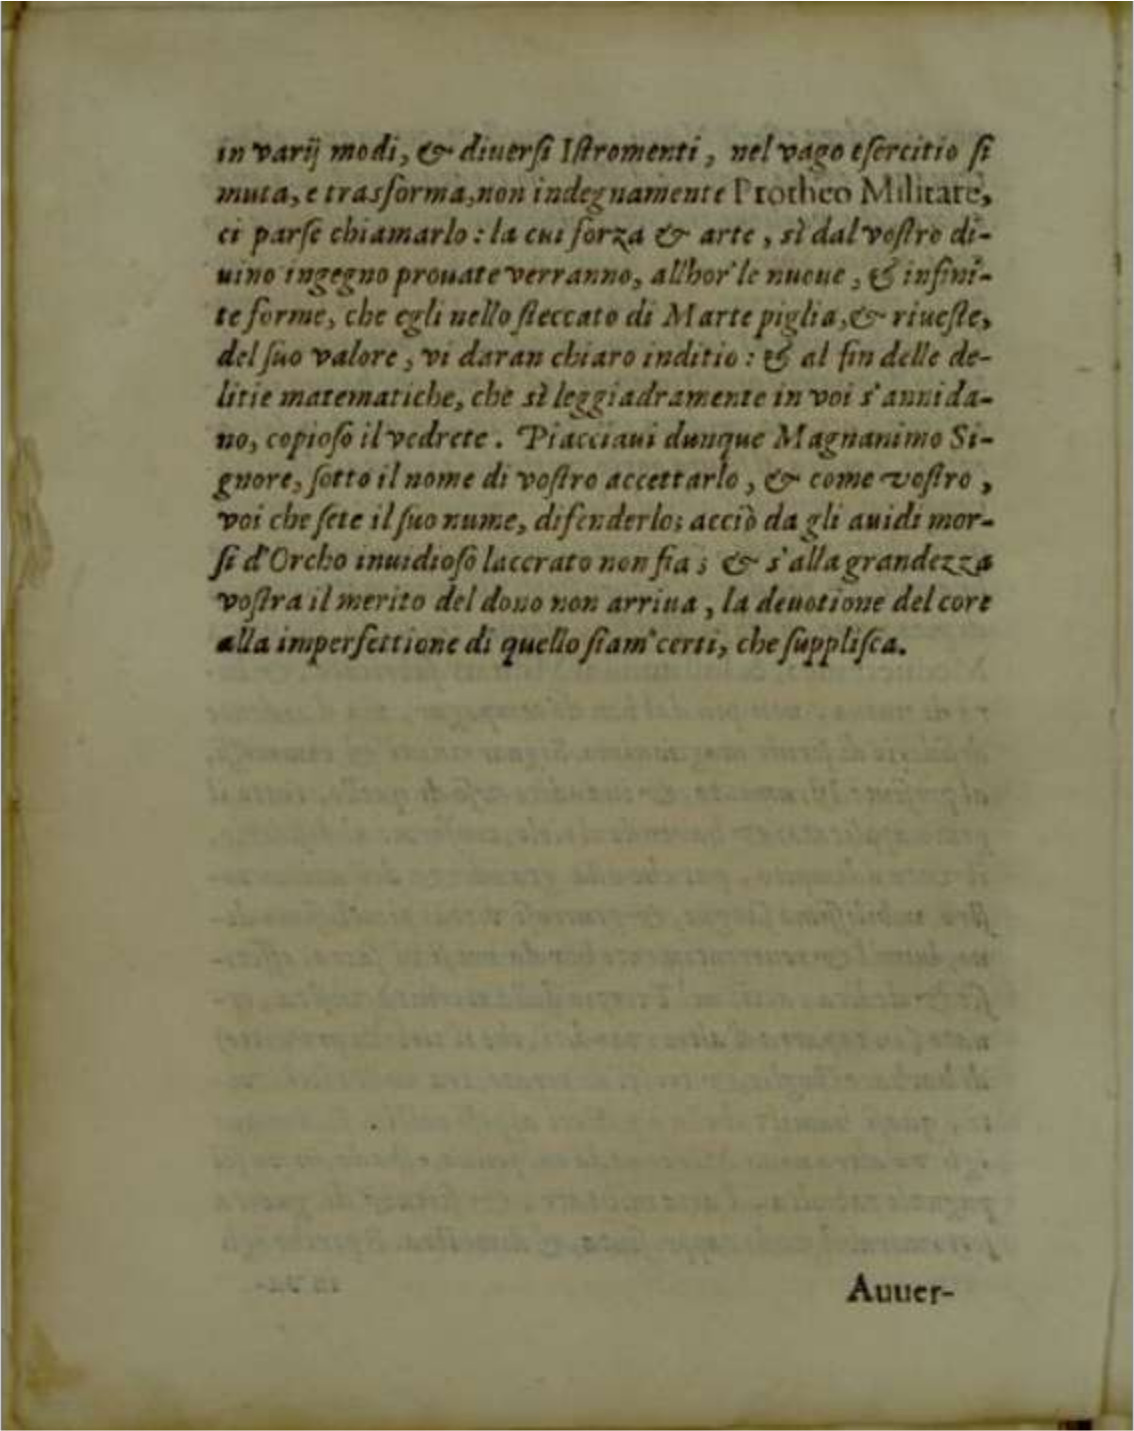 in varij modi, & diuerſi Iſtromenti, nel vago eſercitio ſi
muta, e trasforma, non indegnamente Protheo Militare,
ci parſe chiamarlo: la cui forza & arte, sì dal voſtro di-
uino ingegno prouate verranno, all'hor' le nueue, & infini-
te forme, che egli nello ſteccato di Marte piglia, & riueſte,
del ſuo valore, vi daran chiaro inditio: & al fin delle de-
litie matematiche, che sì leggiadramente in voi s'annida-
no, copioſo il vedrete. Piacciaui dunque Magnanimo Si-
gnore, ſotto il nome di voſtro accettarlo, & come voſtro,
voi che ſete il ſuo nume, difenderlo; acciò da gli auidi mor-
ſi d'Orcho inuidioſo laccrato non ſia; & s'alla grandezza
voſtra il merito del dono non arriua, la deuotione del core
alla imperfettione di quello ſiam' certi, che ſuppliſca.
Auuer-